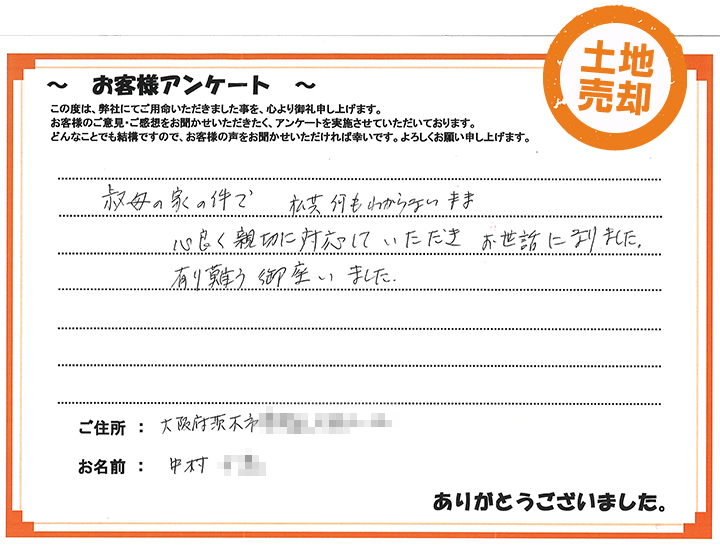 土地
売却
～ お客様アンケート ～
この度は、弊社にてご用命いただきました事を、心より御礼申し上げます。
お客様のご意見・ご感想をお聞かせいただきたく、アンケートを実施させていただいております。
どんなことでも結構ですので、お客様の声をお聞かせいただければ幸いです。よろしくお願い申し上げます。
叔母の家の件で 私共何もわからないまま
心良く親切に対応して いただき お世話になりました。
有り難う御座いました。
ご住所 ： 大阪府茨木市
お名前 ： 中村
ありがとうございました。